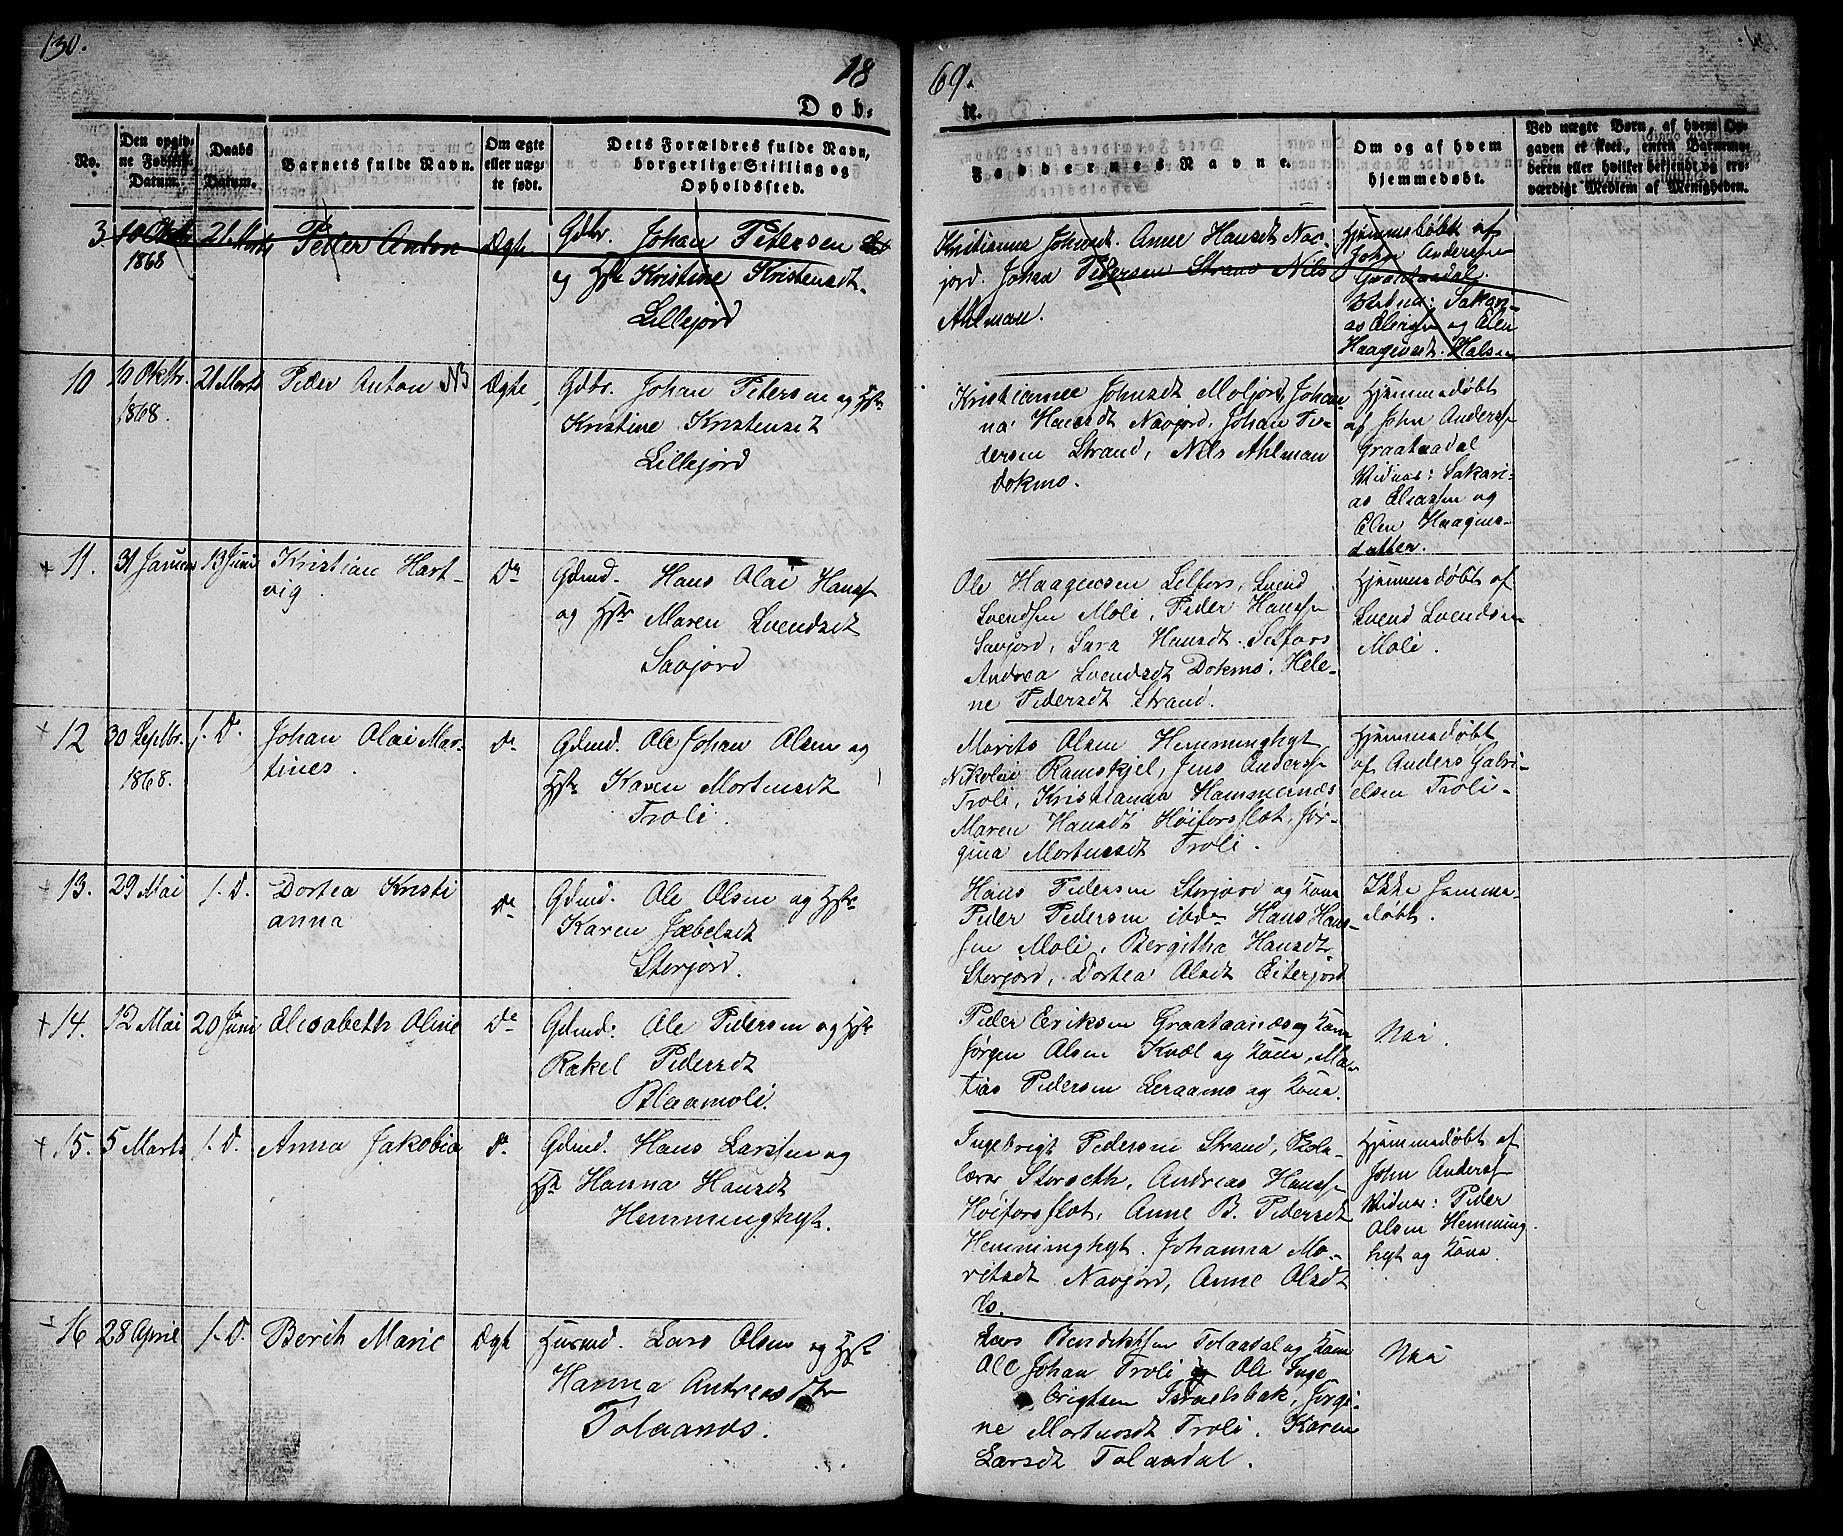 130.
18
69.
Døb-
te.
No.
Den opgiv-
ne Fødsels-
Datum.
Daabs
Datum.
Barnets fulde Navn.
Om ægte
eller uæg-
te født.
Dets Forældres fulde Navn,
borgerlige Stilling og
Opholdssted.
Faddernes Navne.
Om og af hvem
hjemmedøbt.
Ved uægte Børn, af hvem Op-
gaven er skeet, enten Barnemo-
deren eller hvilket bekjendt og tro-
værdigt Medlem af Menigheden.
3
10 Oktbr
1868
21 Marts
Peder Anton
Ægte
Gdbr. Johan Petersen
og Hstr Kristine Kristensdt.
Lillejord
Kristianna Johnsdt. Anne Hansdt Nav-
jord. Johan Pedersen Strand Nils
Ahlman.
Hjemmedøbt af
John Anderssen
Graataadal
Vidner: Sakari-
as og Elen
Haagensdt.
10
10 Oktbr.
1868.
21 Marts
Peder Anton NB
Ægte
Gdbr. Johan Petersen og Hstr
Kristine Kristensdt
Lillejord
Kristianna Johnsdt Moljord, Johan-
na Hansdt Navjord, Johan Pe-
dersen Strand, Nils Ahlman
Dokmo.
Hjemmedøbt
af John Anderss
Graataadal
Vidner: Sakari-
as Eliassen og
Elen Haagens-
datter.
+ 11.
31 Januar
13 Juni
Kristian Hart-
vig.
Do
Gdmd. Hans Olai Hanss
og Hstr Maren Svendsdt
Savjord
Ole Haagensen Selfors, Svend
Svendsen Moli, Peder Hanssen
Savjord, Sara Hansdt. Selfors
Andrea Svendsdt Dokmo, Hele-
ne Pedersdt Strand.
Hjemmedøbt af
Svend Svendsen
Moli.
+ 12
30 Septbr.
1868.
s. D.
Johan Olai Mar-
tines.
Do
Gdmd. Ole Johan Olsen og
Hstr Karen Mortensdt
Troli.
Morits Olsen Hemminghyt
Nikolai Ramskjel, Jens Anderss
Troli, Kristianna Hammernæs
Maren Hansdt Høiforsflot, Jør-
gina Mortensdt Troli.
Hjemmedøbt
af Anders Gabri-
elsen Troli.
+ 13.
29 Mai
s. D.
Dortea Kristi
anna
Do
Gdmd. Ole Olsen og Hstr
Karen Jæbelsdt
Storjord.
Hans Pedersen Storjord og Kona
Peder Pedersen ibdm Hans Hans-
sen Moli, Bergitha Hansdt
Storjord, Dortea Olsdt Eiterjord
Ikke hjemme-
døbt.
+ 14.
12 Mai
20 Juni
Elisabeth Oline
Do
Gdmd: Ole Pedersen og Hstr
Rakel Pedersdt
Blaamoli.
Peder Eriksen Graataanæs og Kona
Jørgen Olsen Kvæl og Kona, Ma-
tias Pedersen Leraamo og Kona.
Nei.
+ 15.
5 Marts
s. D.
Anna Jakobia
Do
Gdmd. Hans Larssen og
Hstr Hanna Hansdt
Hemminghyt.
Ingebrigt Pedersen Strand, Skole-
lærer Storseth, Andreas Hanss
Høiforsflot, Anne B. Pedersdt
Hemminghyt. Johanna Mo-
ritsdt Navjord, Anne Olsdt
do.
Hjemmedøbt af
John Anderss
Vidner: Peder
Olsen Hemming-
hyt og Kona.
16
28 April
s. D.
Berith Marie
Ægt
Husmd. Lars Olsen og Hstr
Hanna Andreasdtr
Tolaanæs.
Lars Bendiktsen Tolaadal og Kona
Ole Johan Troli og Ole Inge
brigtsen Israelsbak, Jørgi-
ne Mortensdt Troli. Karen
Larsdt Tolaadal.
Nei